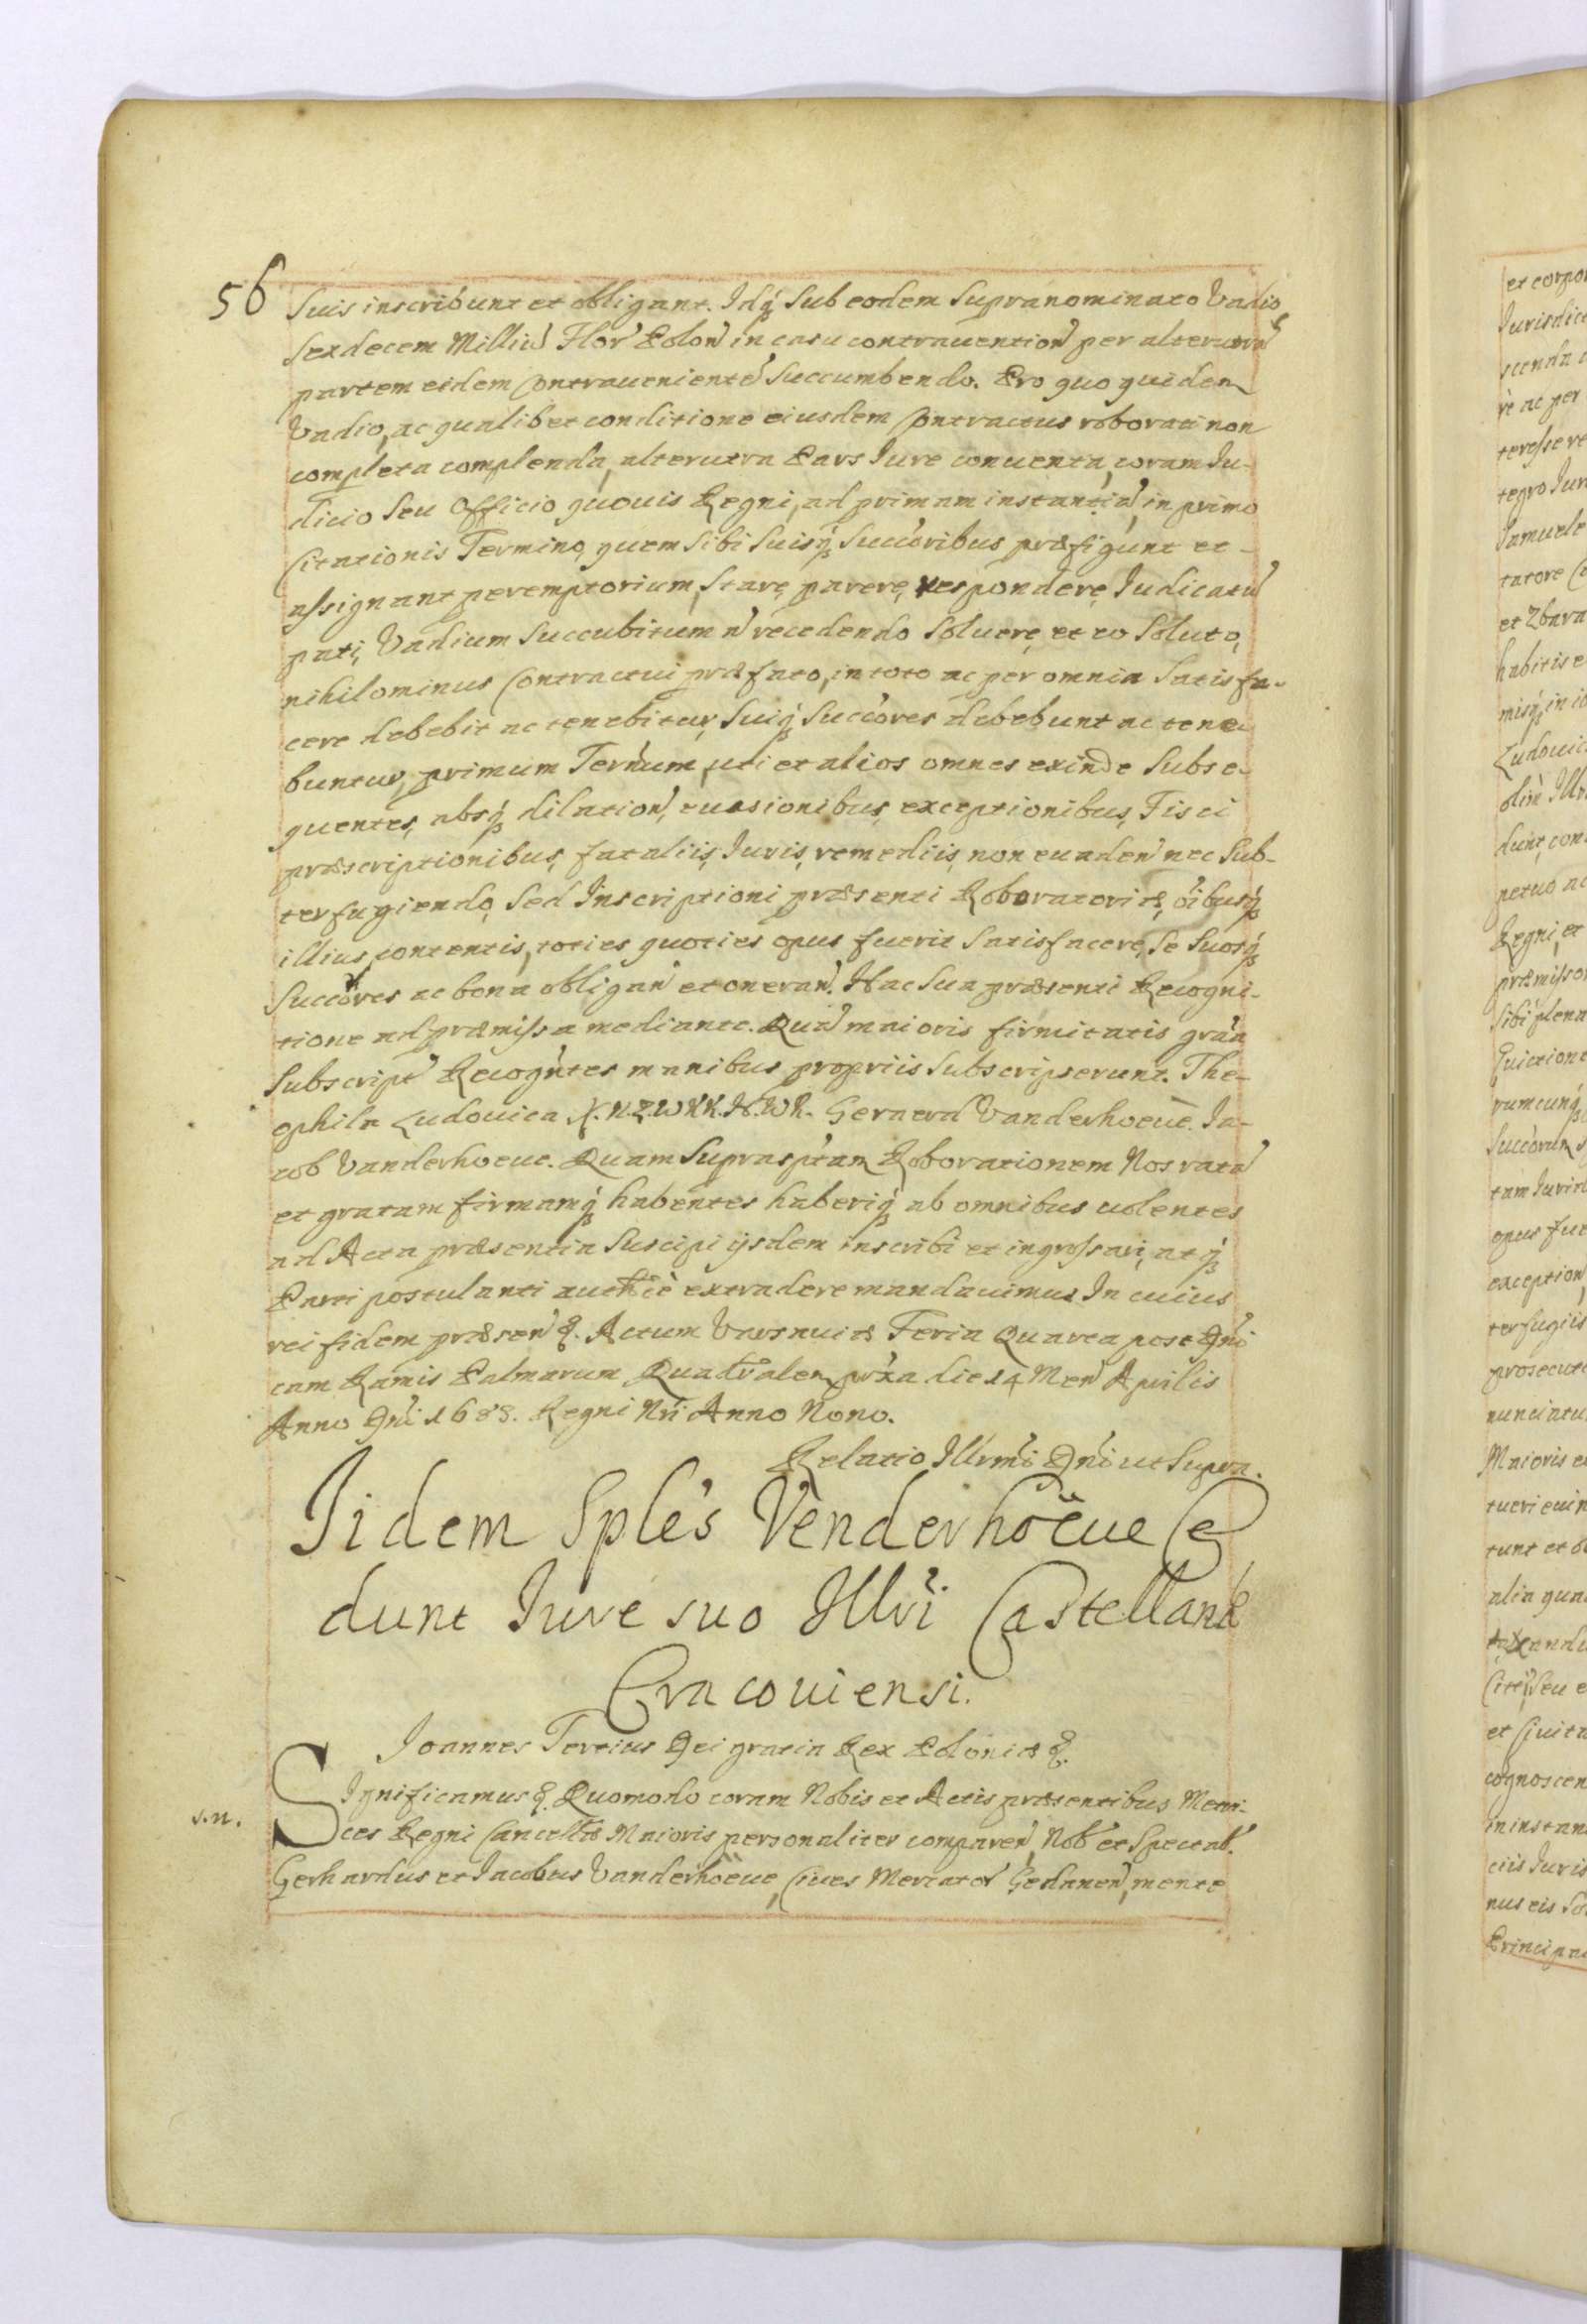 56
Suis inscribunt et obligant. Idq́ sub eodem supranominato Vadio
sexdecem Milliu᷉ Flor᷉ Polon᷉ in casu contrauention᷉ per alterutra᷉
partem eidem Contraueniente᷉ succumbendo. Pro quo quidem
Vadio, ac qualibet conditione eiusdem Contractus roborati non
completa complenda, alterutra Pars Iure conuenta, coram Iu-
dicio seu Officio quouis Regni, ad primam instantia᷉, in primo
Citationis Termino, quem sibi suisq́ Succ᷉oribus præfigunt et -
assignant peremptorium, stare, parere, respondere, Iudicatu᷉
pati, Vadium succubitum n᷉ recedendo soluere, et eo soluto,
nihilominus Contractui præfato, in toto ac per omnia satisfa-
cere debebit ac tenebitur, suiq́ succ᷉ores debebunt ac tene-
buntur, primum Ter᷉num, uti et alios omnes exinde subse-
quentes, absq́ dilation᷉, euasionibus, exceptionibus, Fisci
præscriptionibus, fataliis, Iuris, remediis, non euaden᷉ nec sub-
terfugiendo, sed Inscriptioni præsenti Roboratoriæ, oi᷉busq́
illius contentis, toties quoties opus fuerit satisfacere, se suosq́
succ᷉ores ac bona obligan᷉ et oneran᷉. Hac sua præsenti Recogni-
tione ad præmissa mediante. Qua᷉ maioris firmitatis gra᷉a
subscript᷉ Recogn᷉tes manibus propriis subscripserunt. The-
ophila Ludouica X. N. Z. W K K. H. W R. Geraerd Vanderhoeue. Ia-
cob Vanderhoeue. Quam suprasp᷉tam Roborationem Nos rata᷉
et gratam firmamq́ habentes haberiq́ ab omnibus uolentes
ad Acta præsentia suscipi ijsdem inscribi et ingrossari, atq́
Parti postulanti auth᷉ice extradere mandauimus In cuius
rei fidem præsen᷉ &. Actum Varsauiæ Feria Quarta post Dn᷉i
cam Ramis Palmarum Quadr᷉alem prx᷉a die 14 Men᷉ Aprilis
Anno Dn᷉i 1683. Regni Nri᷉ Anno Nono.
Relatio Illrmi᷉ Dn᷉i ut supra.
Iidem Sple᷉s Venderhoëue Ce
dunt Iure suo Illri᷉ Castellano
Cracouiensi.
Ioannes Tertius Dei gratia Rex Poloniæ &.
s.n.
Significamus &. Quomodo coram Nobis et Actis præsentibus Metri-
ces Regni Cancell᷉æ Maioris personaliter comparen᷉, Nob᷉ et Spectab᷉.
Gerhardus et Iacobus Vanderhoëue, Ciues Mercator᷉ Gedanen᷉, mente
et corpor
Iurisdic
scenda
rè ac per
teresse re
tegro Iur
Samuele
tatore
et Zbara
habitis e
misq́, in
Ludouic
dunt, con
petuo ac
Regni, et
præmisso
sibi plena
Euictione
rumcunq́
tam Iuris
opus fue
exception
terfugiis
prosecut
nunciatu
Maioris e
tueri euin
tunt et
alia qua
seu e
et Ciuita
cognoscen
in instan
ciis Iuris
nus eis
Principa